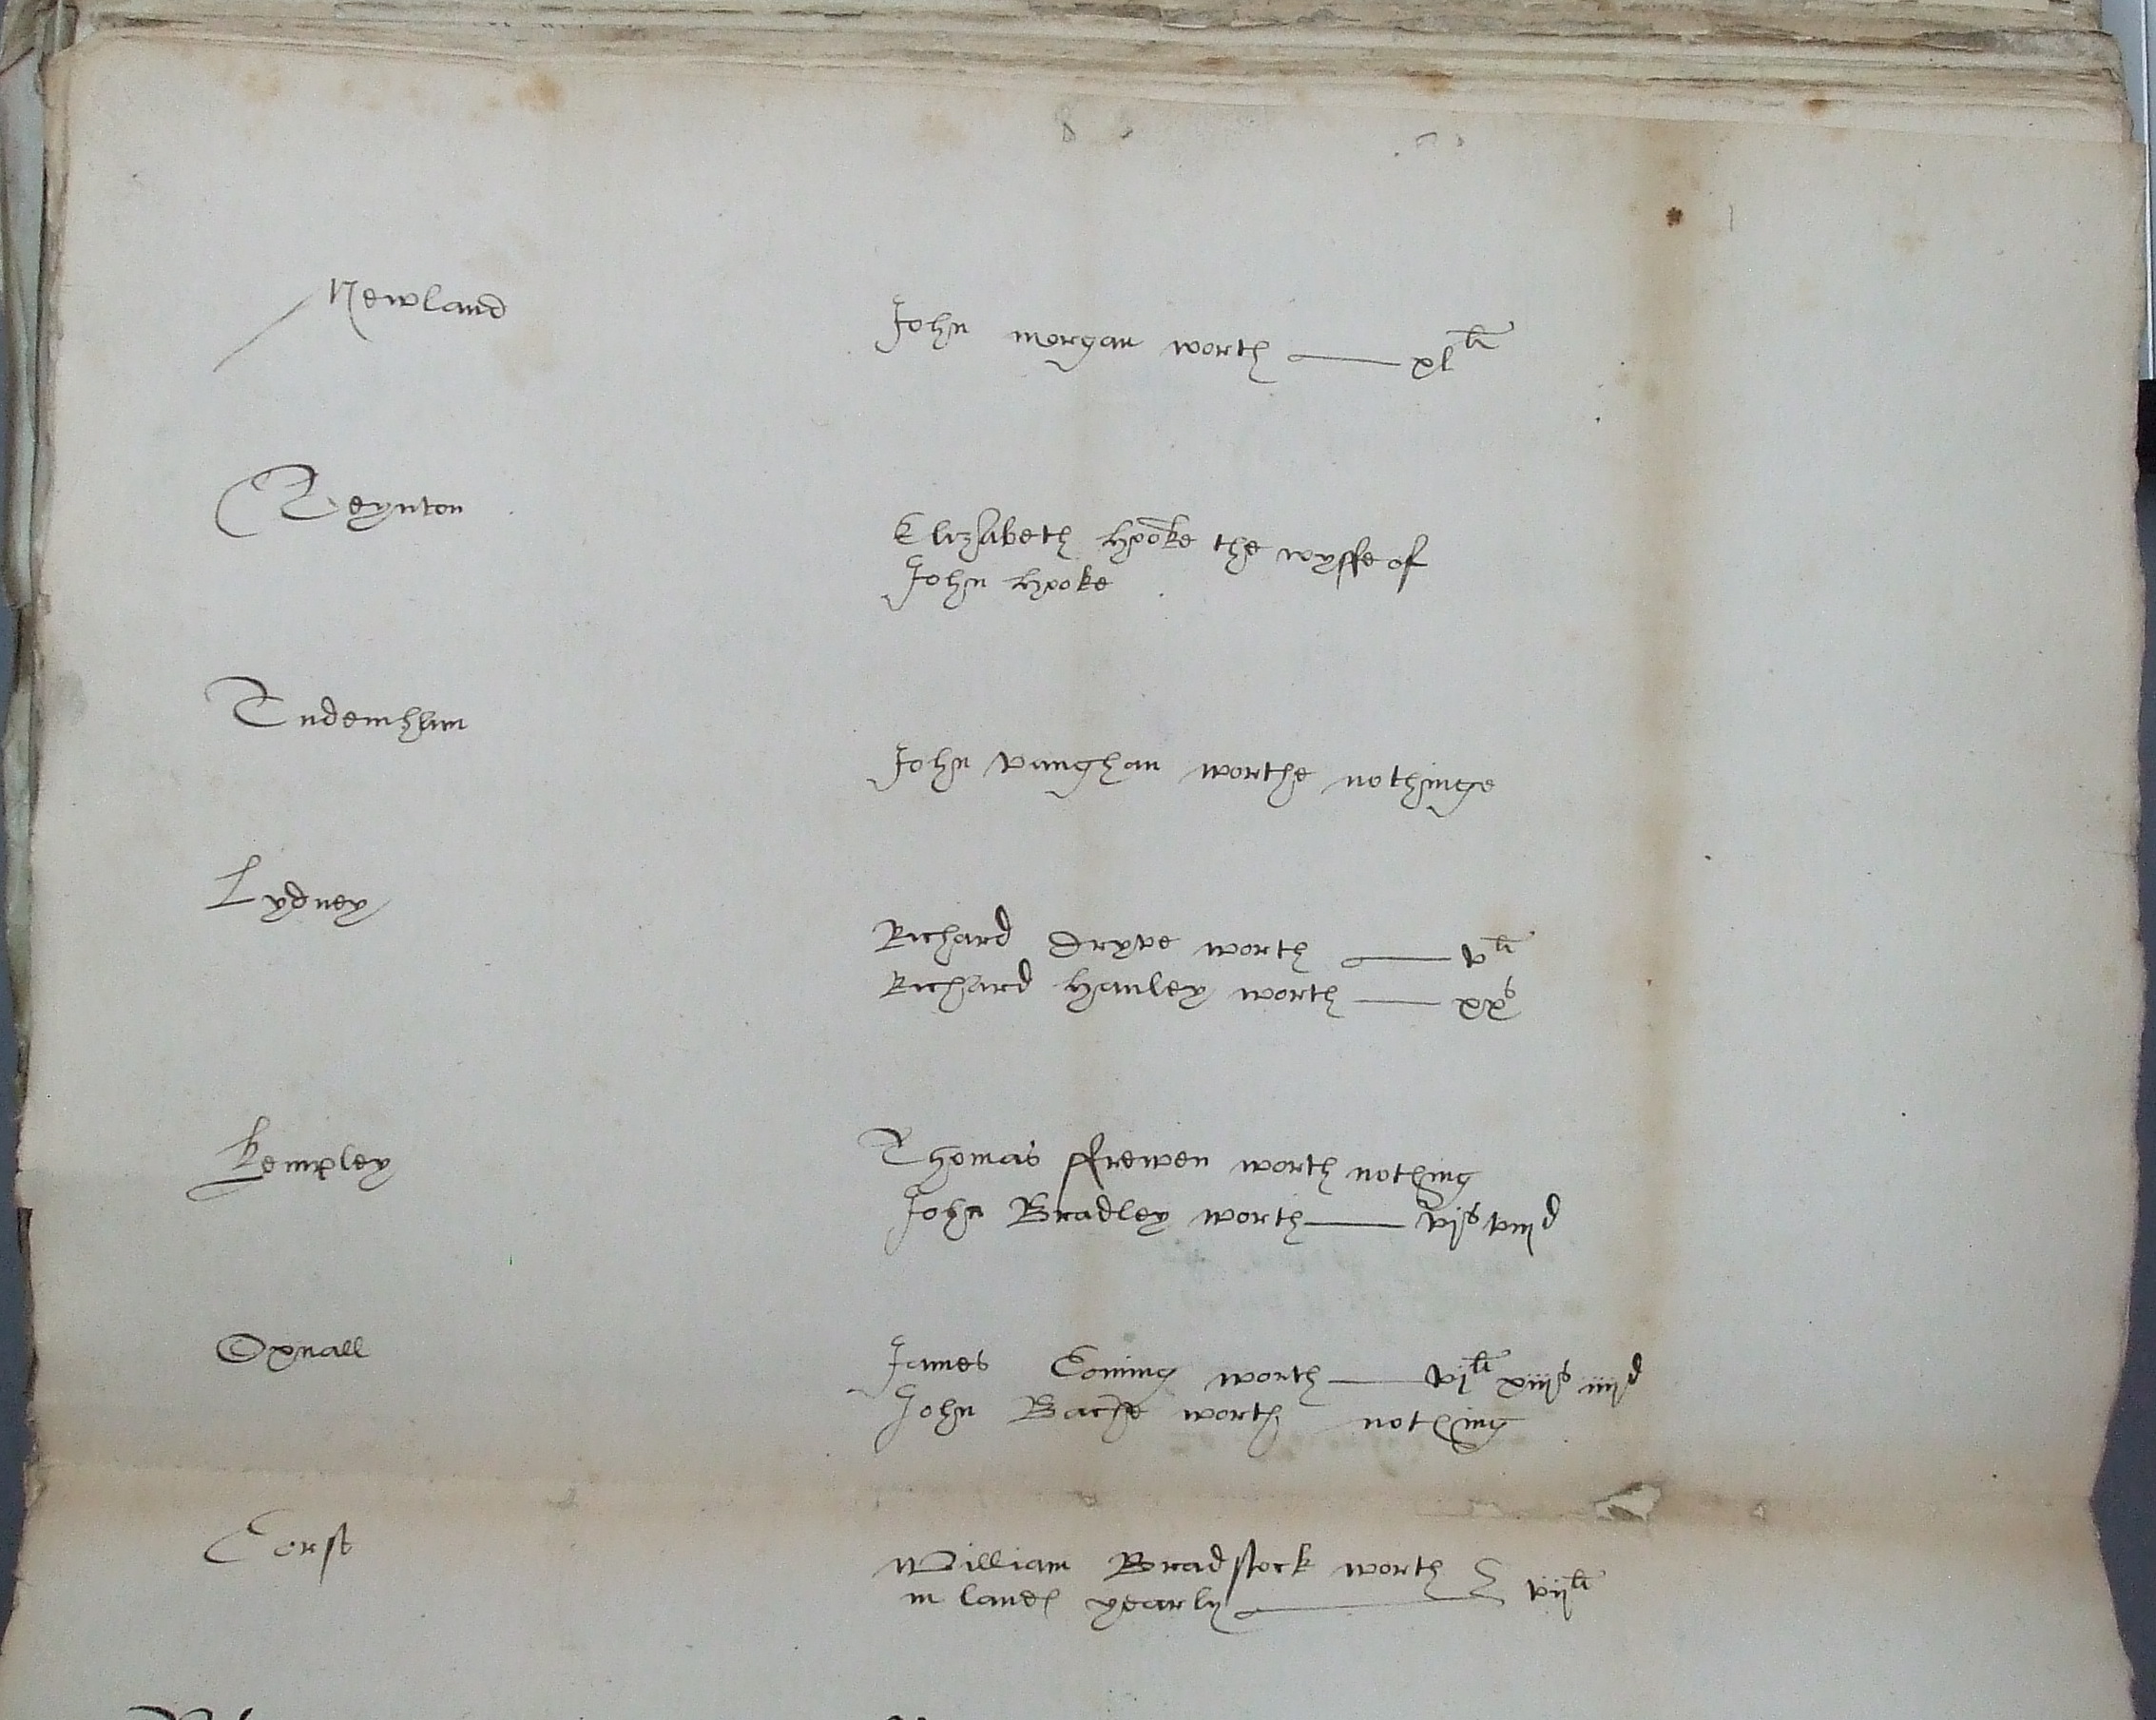 Newland
John morgan worth — xl li
Teynton
Elizabeth hooke the wyffe of
John hooke
Tudenham
John vaughan worthe nothinge
Lydney
Richard Dryve worth — v li
Richard Hanley worth — xx s
Kempley
Thomas ffrewen worth nothing
John Bradley worth — vj s viij d
Oxnall
James Coning worth — vj li xiij s iiij d
John Bache worth nothing
Corst
William Bradstock worth
in landes yearly — vij li